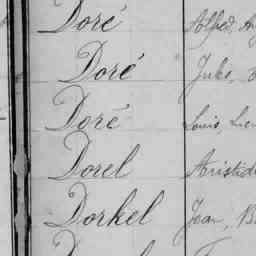 Doré Alfred,
Doré Jules,
Doré Louis,
Dorel Aristide
Dorkel Jean,